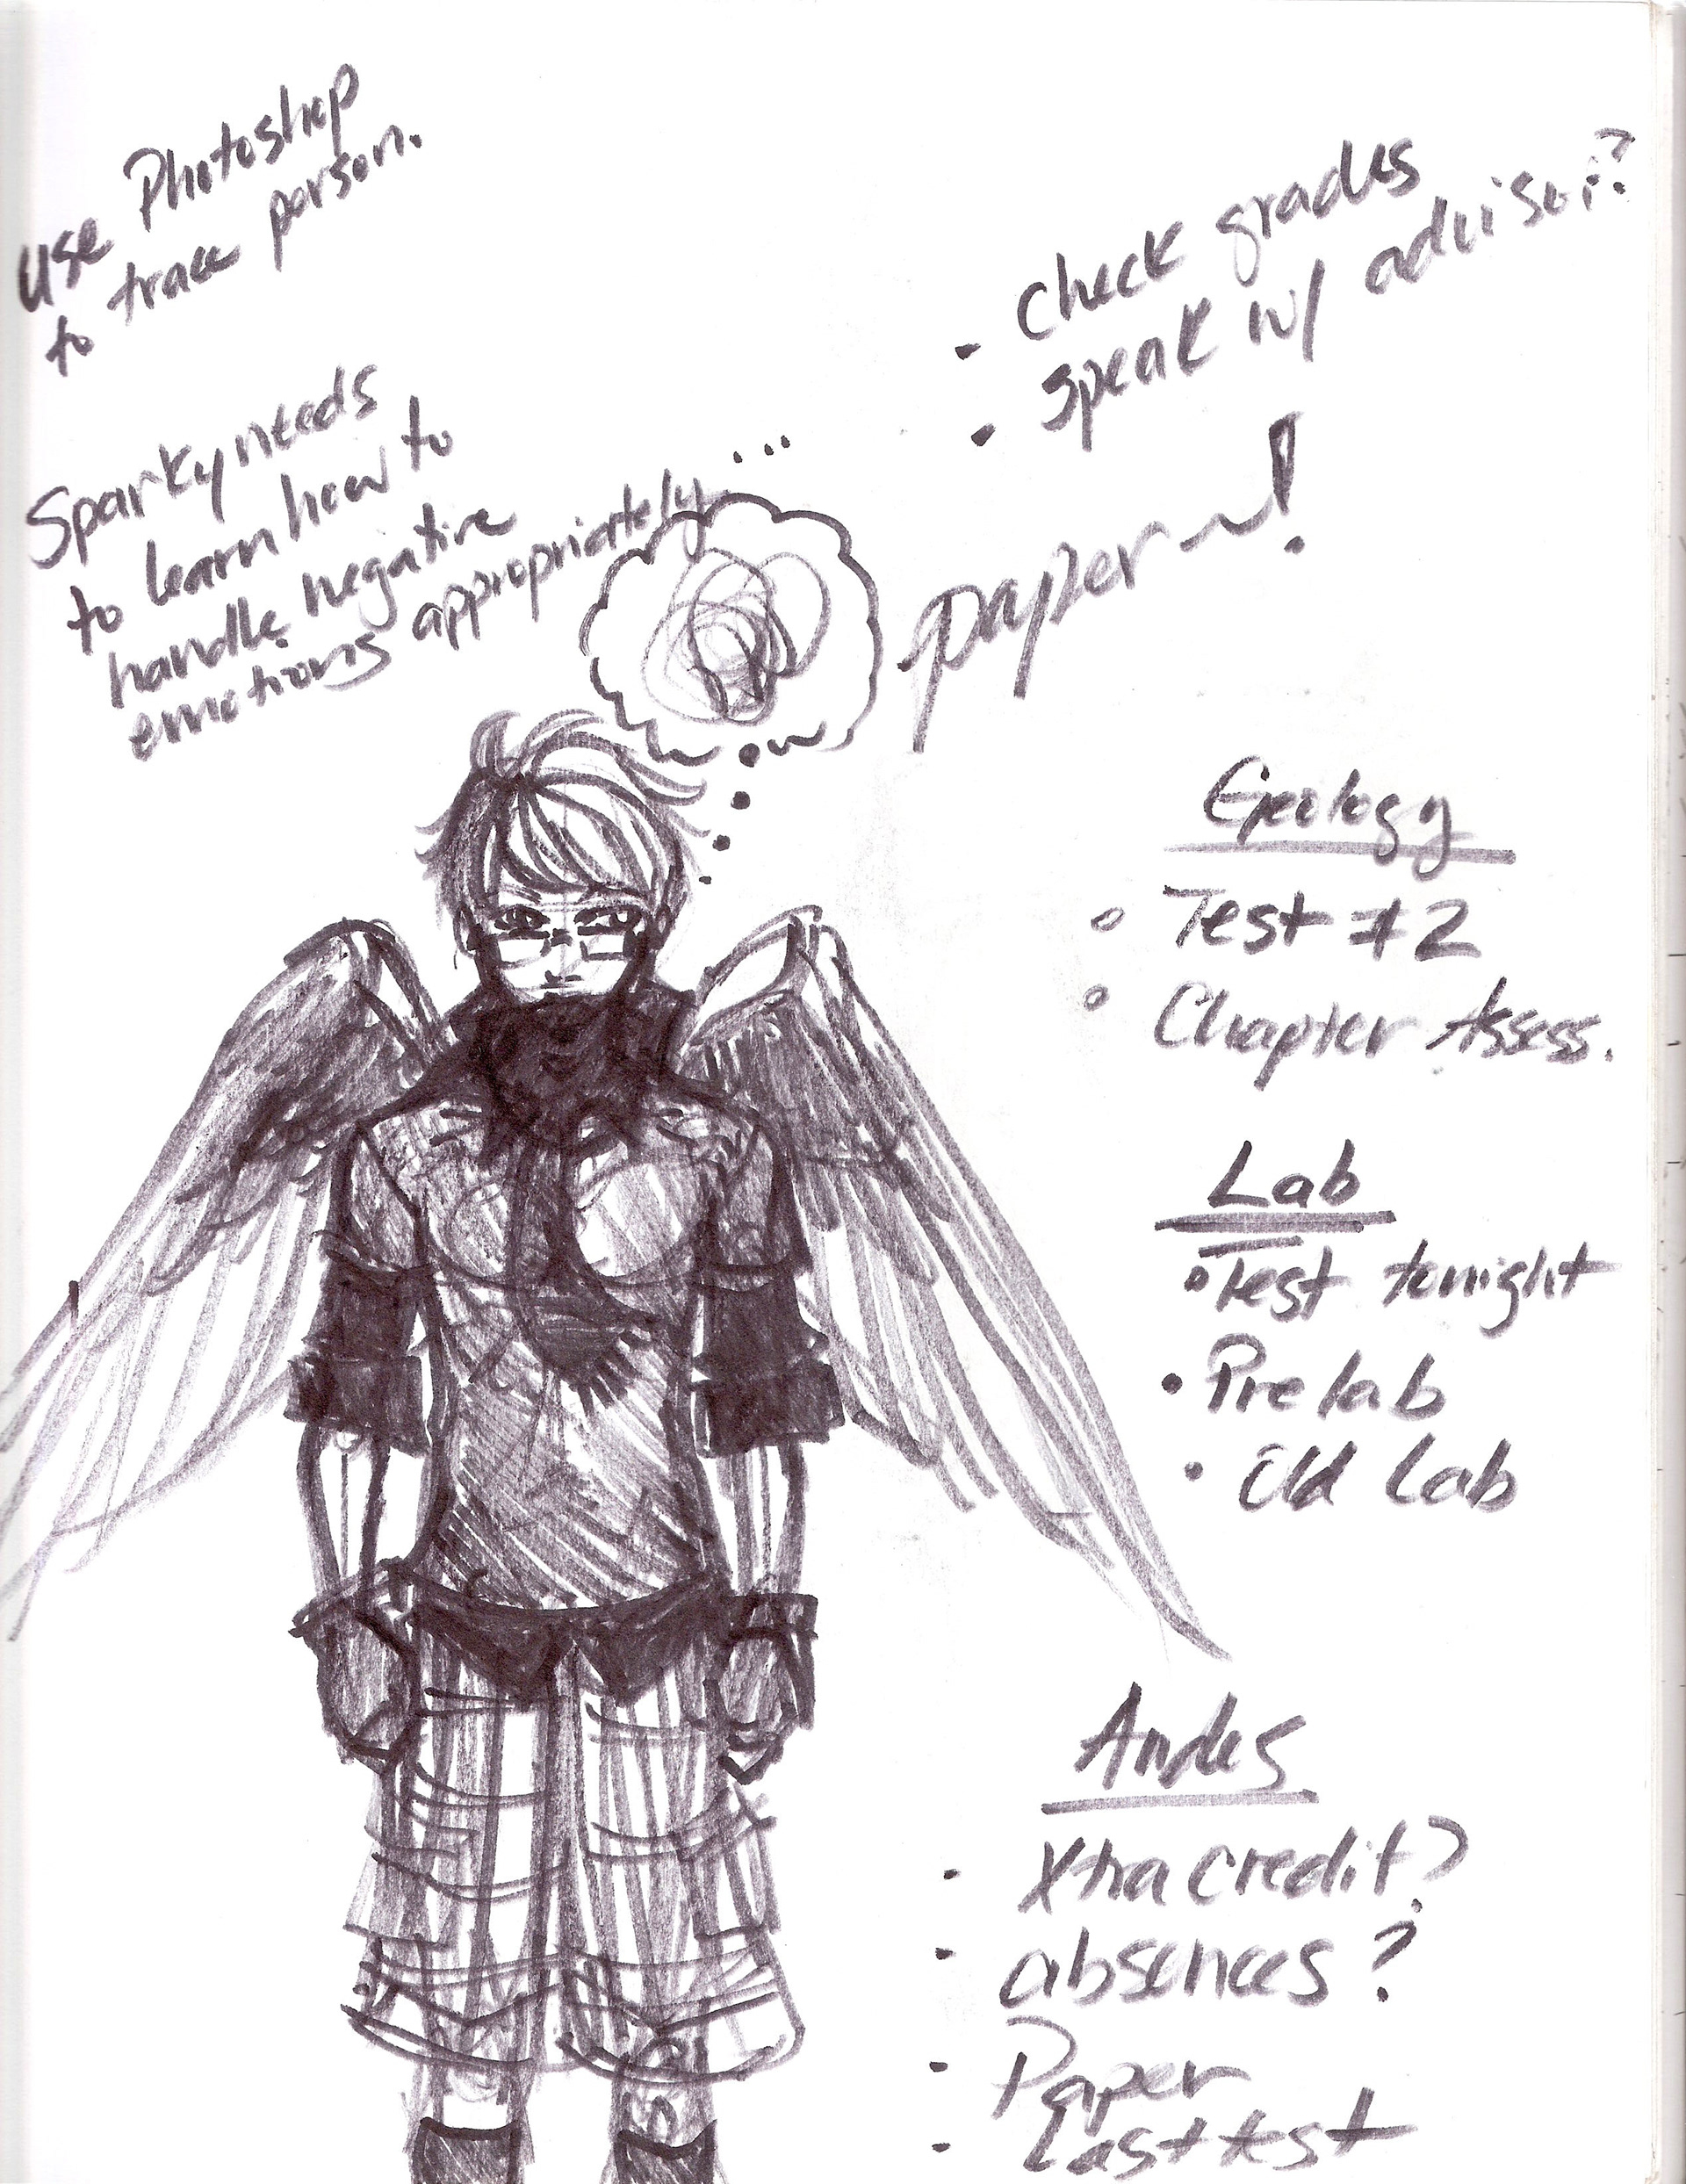 use Photoshop
to trace person.
Sparky needs
to learn how to
handle negative
emotions appropriately...
...
• check grades
• speak w/ advisor??
paper~!
Geology
◦ Test #2
◦ Chapter Assess.
Lab
• Test tonight
• Prelab
• Old Lab
Andes
• Xtra credit?
• absences?
• Paper
• Last test